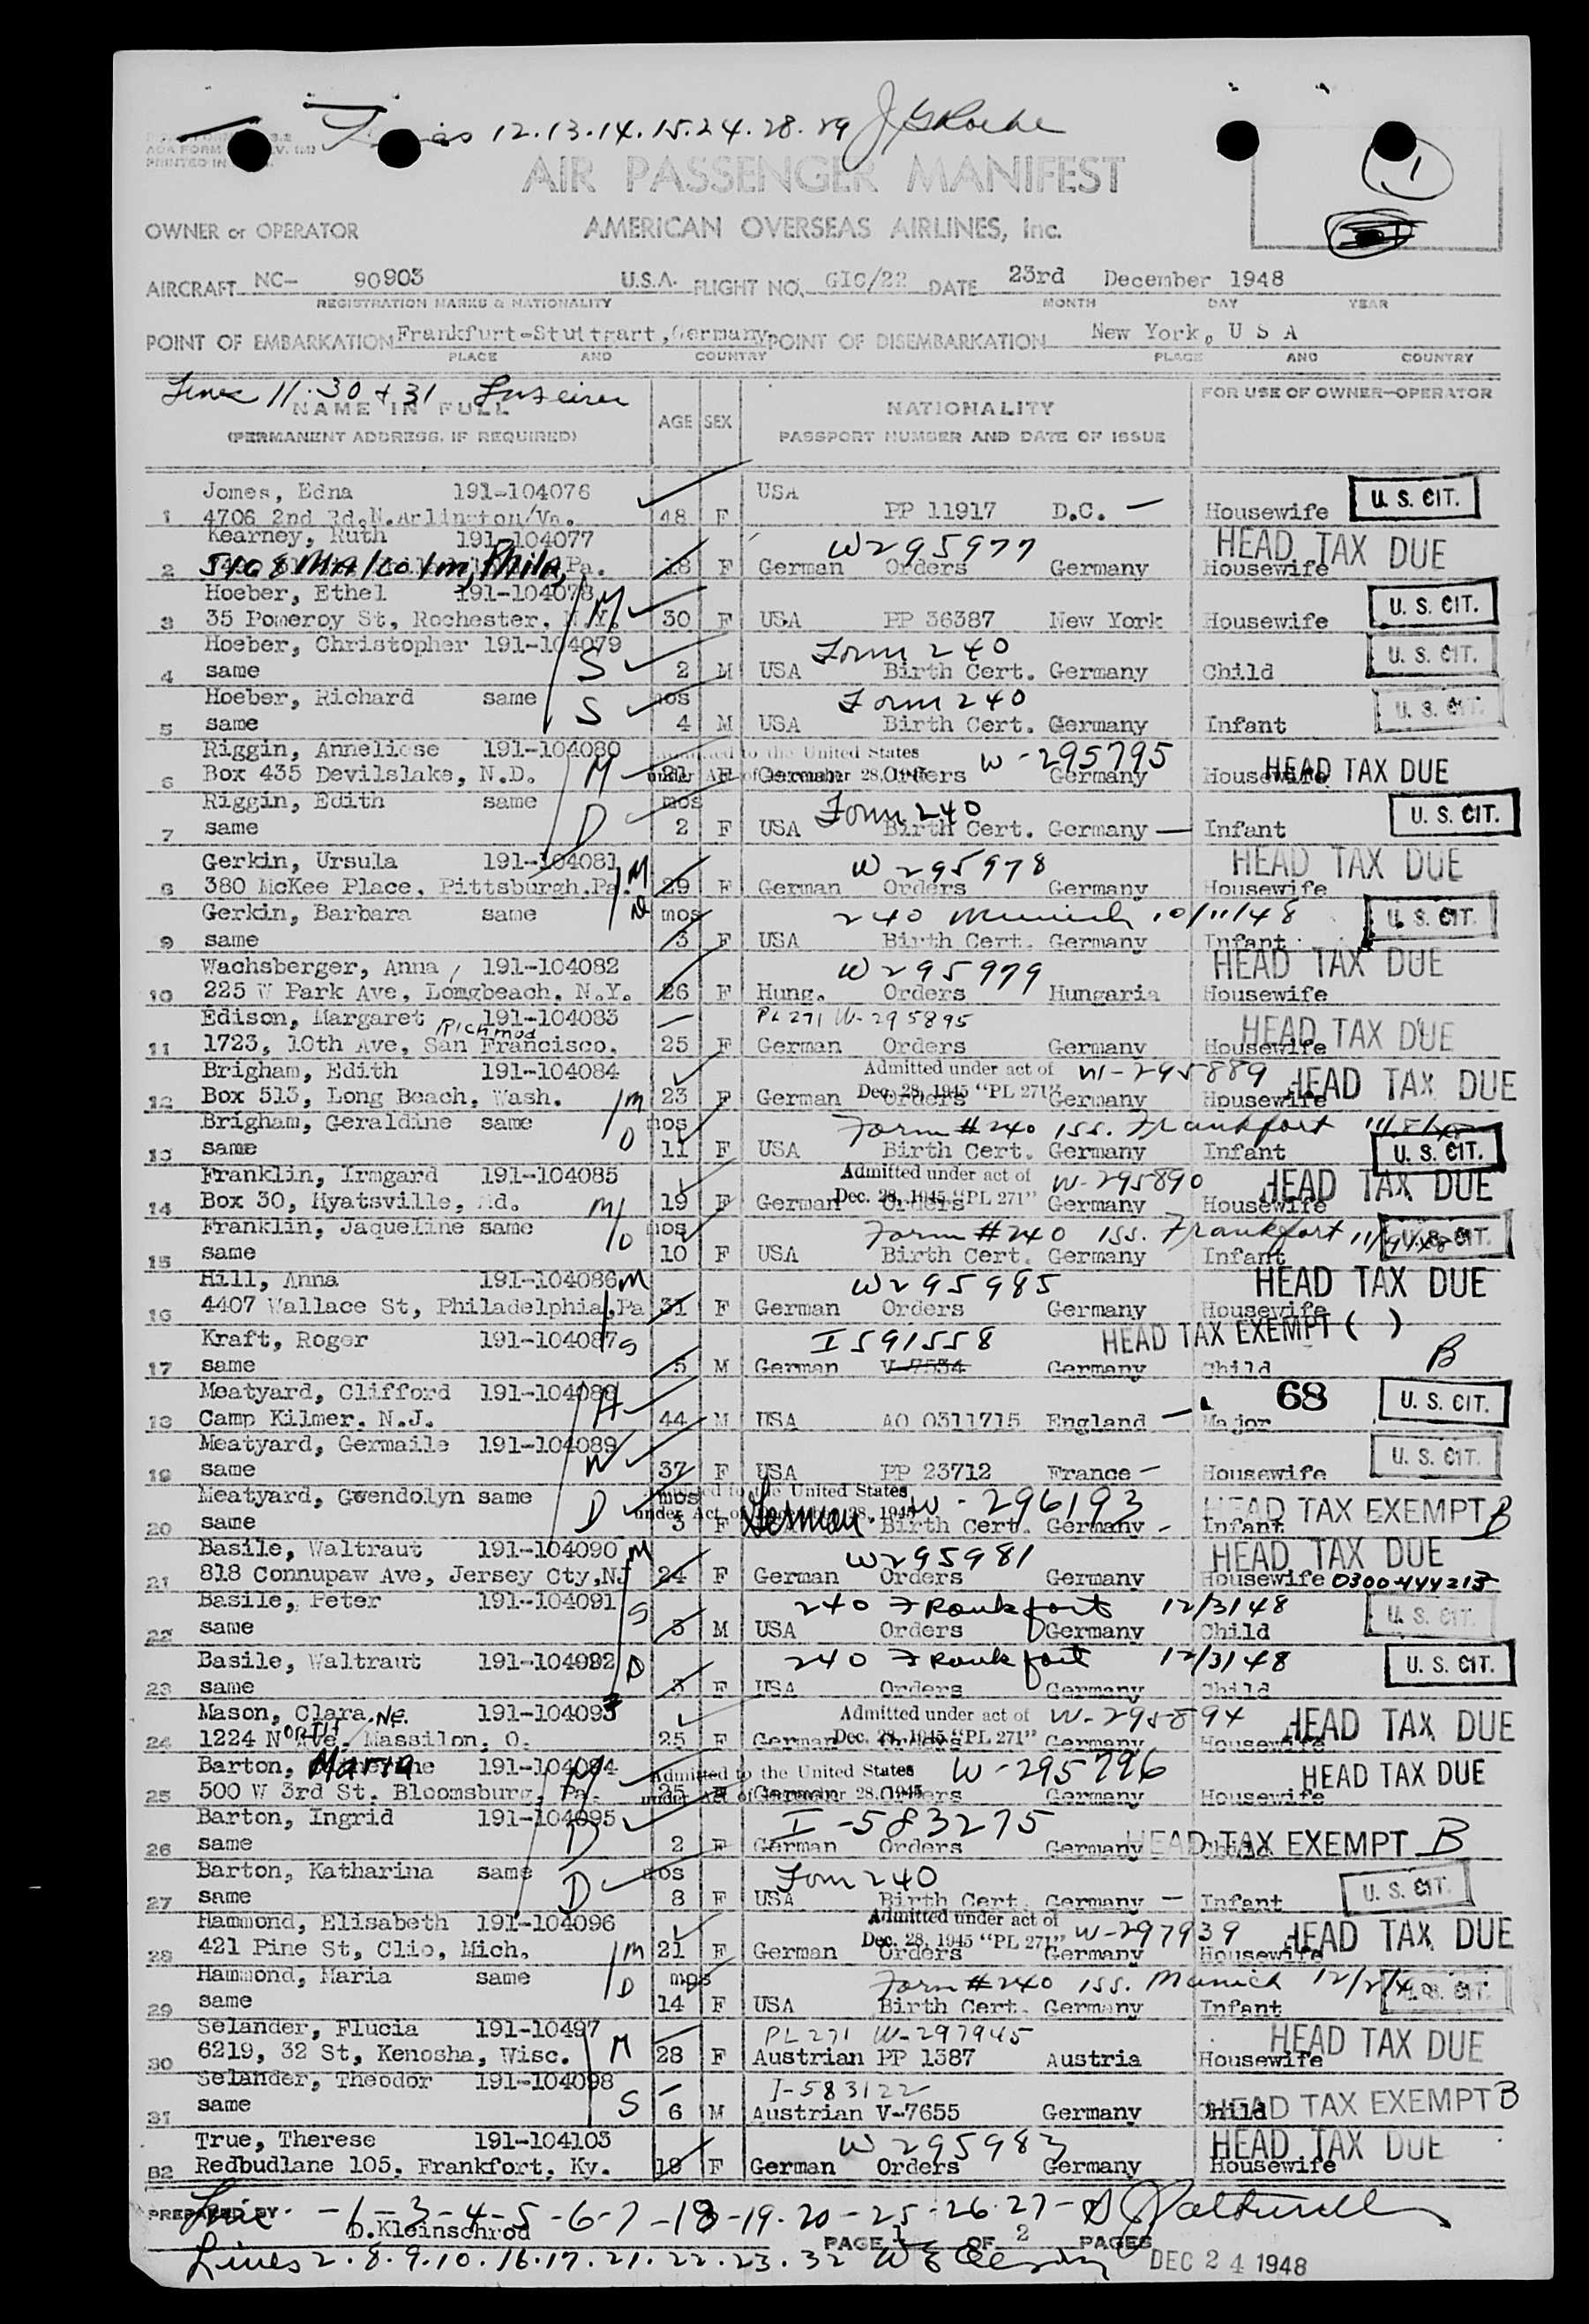 12.13.14.15.24.28.29
AIR PASSENGER MANIFEST
1
OWNER or OPERATOR AMERICAN OVERSEAS AIRLINES, Inc.
AIRCRAFT NC- 90903 U.S.A. FLIGHT NO. GIC/22 DATE 23rd December 1948
REGISTRATION MARKS & NATIONALITY MONTH DAY YEAR
POINT OF EMBARKATION Frankfurt-Stuttgart, Germany POINT OF DISEMBARKATION New York, U S A
PLACE AND COUNTRY PLACE AND COUNTRY
Lines 11.30 + 31
NAME IN FULL AGE SEX NATIONALITY FOR USE OF OWNER-OPERATOR
(PERMANENT ADDRESS, IF REQUIRED) PASSPORT NUMBER AND DATE OF ISSUE
Jomes, Edna 191-104076 USA U. S. CIT.
1 4706 2nd Rd.N.Arlington/Va. 48 F PP 11917 D.C. Housewife
Kearney, Ruth 191-104077 W295977 HEAD TAX DUE
2 5108 Malcolm, Phila, Pa. 18 F German Orders Germany Housewife
Hoeber, Ethel 191-104078 M U. S. CIT.
3 35 Pomeroy St, Rochester, N.Y. 30 F USA PP 36387 New York Housewife
Hoeber, Christopher 191-104079 Form 240 U. S. CIT.
4 same S 2 M USA Birth Cert. Germany Child
Hoeber, Richard same mos Form 240 U. S. CIT.
5 same S 4 M USA Birth Cert. Germany Infant
Riggin, Anneliese 191-104080 Admitted to the United States W-295795
6 Box 435 Devilslake, N.D. M 21 F under Act of December 28, 1945 German Orders Germany Housewife HEAD TAX DUE
Riggin, Edith same mos Form 240 U. S. CIT.
7 same D 2 F USA Birth Cert. Germany Infant
Gerkin, Ursula 191-104081 M W295978 HEAD TAX DUE
8 380 McKee Place, Pittsburgh,Pa. 29 F German Orders Germany Housewife
Gerkin, Barbara same D mos 240 Munich 10/11/48 U. S. CIT.
9 same 3 F USA Birth Cert. Germany Infant
Wachsberger, Anna 191-104082 W295979 HEAD TAX DUE
10 225 W Park Ave, Lomgbeach, N.Y. 26 F Hung. Orders Hungaria Housewife
Edison, Margaret 191-104083 PL 271 W-295895 HEAD TAX DUE
Richmod
11 1723, 10th Ave, San Francisco. 25 F German Orders Germany Housewife
Brigham, Edith 191-104084 Admitted under act of W-295889 HEAD TAX DUE
12 Box 513, Long Beach, Wash. M 23 F German Dec. 28, 1945 "PL 271" Orders Germany Housewife
Brigham, Geraldine same D mos Form #240 iss. Frankfort 11/8/48
13 same 11 F USA Birth Cert. Germany Infant U. S. CIT.
Franklin, Irmgard 191-104085 Admitted under act of W-295890 HEAD TAX DUE
14 Box 30, Hyatsville, Md. M 19 F German Dec. 28, 1945 "PL 271" Orders Germany Housewife
Franklin, Jaqueline same D mos Form #240 iss. Frankfort 11/9/48 U. S. CIT.
15 same 10 F USA Birth Cert. Germany Infant
Hill, Anna 191-104086 M W295985 HEAD TAX DUE
16 4407 Wallace St, Philadelphia,Pa 31 F German Orders Germany Housewife
Kraft, Roger 191-104087 S I591558 HEAD TAX EXEMPT ( )
17 same 5 M German V-7534 Germany Child B
Meatyard, Clifford 191-104088 H 68 U. S. CIT.
18 Camp Kilmer, N.J. 44 M USA AO 0311715 England Major
Meatyard, Germaile 191-104089 W U. S. CIT.
19 same 37 F USA PP 23712 France Housewife
Meatyard, Gwendolyn same D mos Admitted to the United States W-296193 HEAD TAX EXEMPT B
20 same 3 F under Act of December 28, 1945 German Birth Cert. Germany Infant
Basile, Waltraut 191-104090 M W295981 HEAD TAX DUE
21 818 Connupaw Ave, Jersey Cty,NJ 24 F German Orders Germany Housewife 0300444213
Basile, Peter 191-104091 S 240 Frankfort 12/3/48 U. S. CIT.
22 same 5 M USA Orders Germany Child
Basile, Waltraut 191-104092 D 240 Frankfort 12/3/48 U. S. CIT.
23 same 3 F USA Orders Germany Child
Mason, Clara 191-104093 Admitted under act of W-295894 HEAD TAX DUE
NORTH NE.
24 1224 N Ave. Massilon, O. 25 F German Dec. 28, 1945 "PL 271" Orders Germany Housewife
Barton, Maria 191-104094 M Admitted to the United States W-295796 HEAD TAX DUE
25 500 W 3rd St. Bloomsburg, Pa. 25 F under Act of December 28, 1945 German Orders Germany Housewife
Barton, Ingrid 191-104095 I-583275
26 same D 2 F German Orders Germany Child HEAD TAX EXEMPT B
Barton, Katharina same mos Form 240 U. S. CIT.
27 same D 8 F USA Birth Cert. Germany Infant
Hammond, Elisabeth 191-104096 Admitted under act of W-297939 HEAD TAX DUE
28 421 Pine St, Clio, Mich. M 21 F German Dec. 28, 1945 "PL 271" Orders Germany Housewife
Hammond, Maria same D mos Form #240 iss. Munich 12/2/4 U. S. CIT.
29 same 14 F USA Birth Cert. Germany Infant
Selander, Flucia 191-10497 PL 271 W-297945 HEAD TAX DUE
30 6219, 32 St, Kenosha, Wisc. M 28 F Austrian PP 1587 Austria Housewife
Selander, Theodor 191-104098 I-583122
31 same S 6 M Austrian V-7655 Germany Child HEAD TAX EXEMPT B
True, Therese 191-104103 W295983 HEAD TAX DUE
32 Redbudlane 105, Frankfort, Ky. 19 F German Orders Germany Housewife
PREPARED BY Line -1-3-4-5-6-7-18-19-20-25-26-27-
D.Kleinschrod PAGE 1 OF 2 PAGES
Lines 2.8.9.10.16.17.21.22.23.32 DEC 24 1948